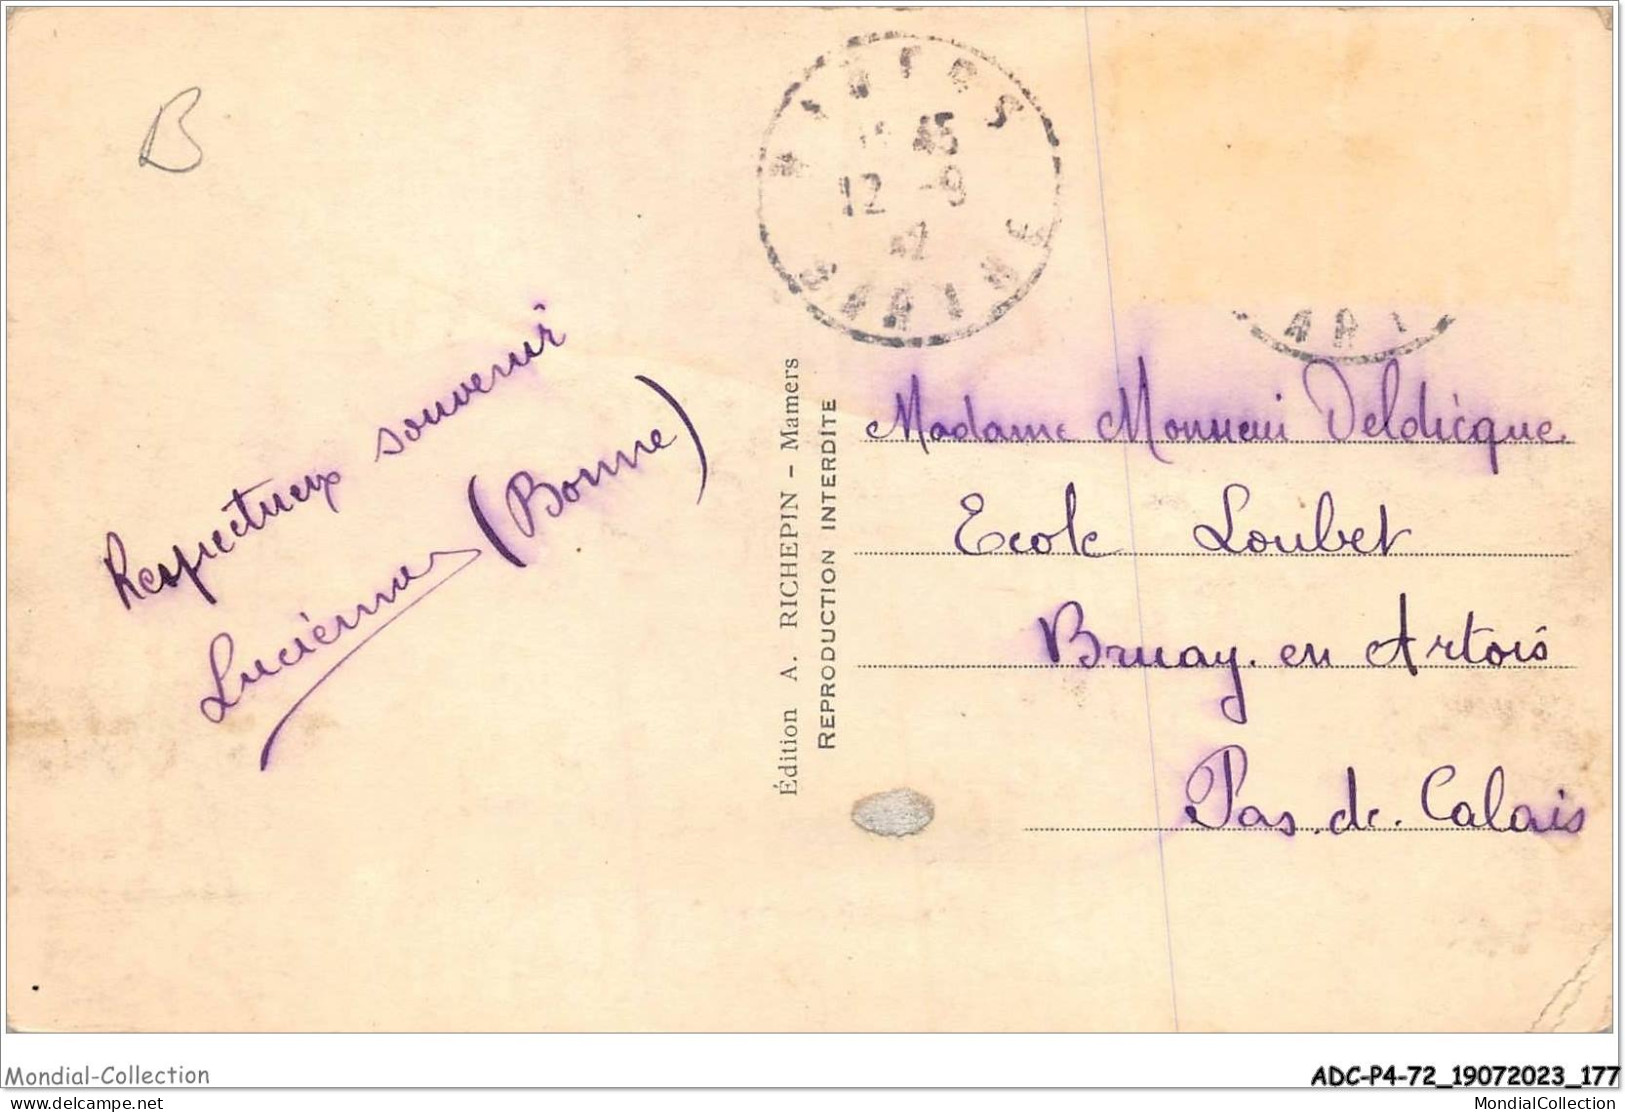 B
45
12 -9
42
ARI
Respectueux souvenir
Lucienne (Bonne)
Édition A. RICHEPIN - Mamers
REPRODUCTION INTERDITE
Madame
Ecole Loubet
Bruay. en Artois
Pas. de. Calais
Mondial-Collection
ADC-P4-72_19072023_177
delcampe.net
MondialCollection